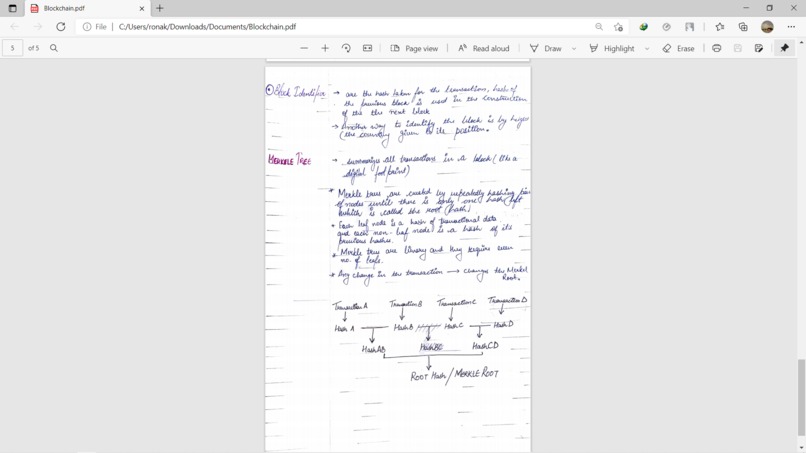 Blockchain.pdf
File
C:/Users/ronak/Downloads/Documents/Blockchain.pdf
5 of 5
Page view
Read aloud
Draw
Highlight
Erase
Block Identifier → are the hash taken for the transactions, hash of
the previous block is used in the construction
of the the next block
→ Another way to identify the block is by
given to its position.
MERKLE TREE → summarizes all transactions in a block (like a
digital footprint)
* Merkle trees are created by repeatedly hashing pair
of nodes until there is only one hash left
which is called the root (hash)
* Each leaf node is a hash of transactional data
and each non-leaf node is a hash of its
previous hashes.
* Merkle trees are binary and they require even
no. of leafs.
* Any change in the transaction → changes the Merkel
Root.
Transaction A Transaction B Transaction C Transaction D
Hash A Hash B Hash C Hash D
Hash AB Hash BC Hash CD
ROOT Hash / MERKLE ROOT